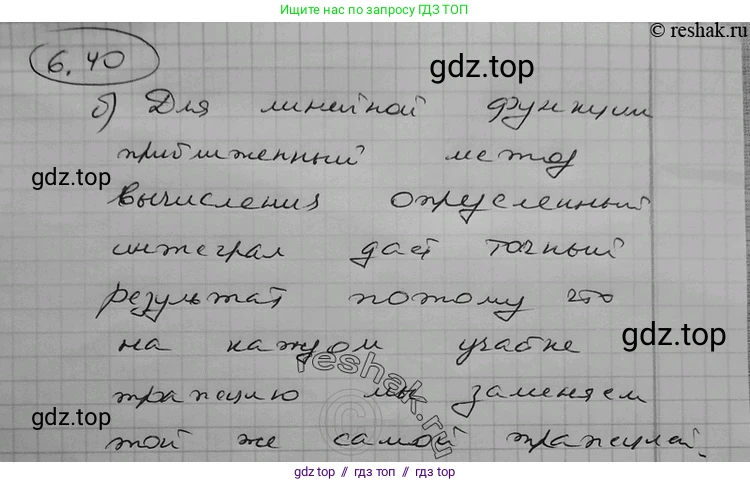 Ищите нас по запросу ГДЗ ТОП
© reshak.ru
6.40
gdz.top
б) Для линейной функции
приближенный метод
gdz.top
вычисления определенный
интеграл даёт точный
результат потому что
на каждом участке
gdz.top
reshak.ru
трапецию мы заменяем
gdz.top
той же самой трапецией.
gdz.top // гдз топ // gdz.top